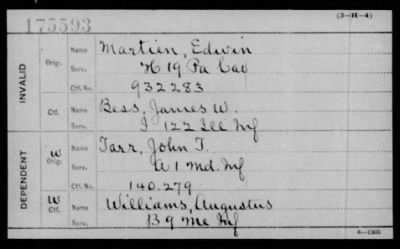 175593
(3-H-4)
INVALID
Orig.
Name Martien, Edwin
Serv. H 19 Pa Cav
Ctf. No. 932283
Ctf.
Name Bess, James W.
Serv. I 122 Ill Inf
DEPENDENT
W
Orig.
Name Tarr, John T.
Serv. A 1 Md. Inf
Ctf. No. 140.279
W
Ctf.
Name Williams, Augustus
Serv. B 9 Me Inf
6-1303